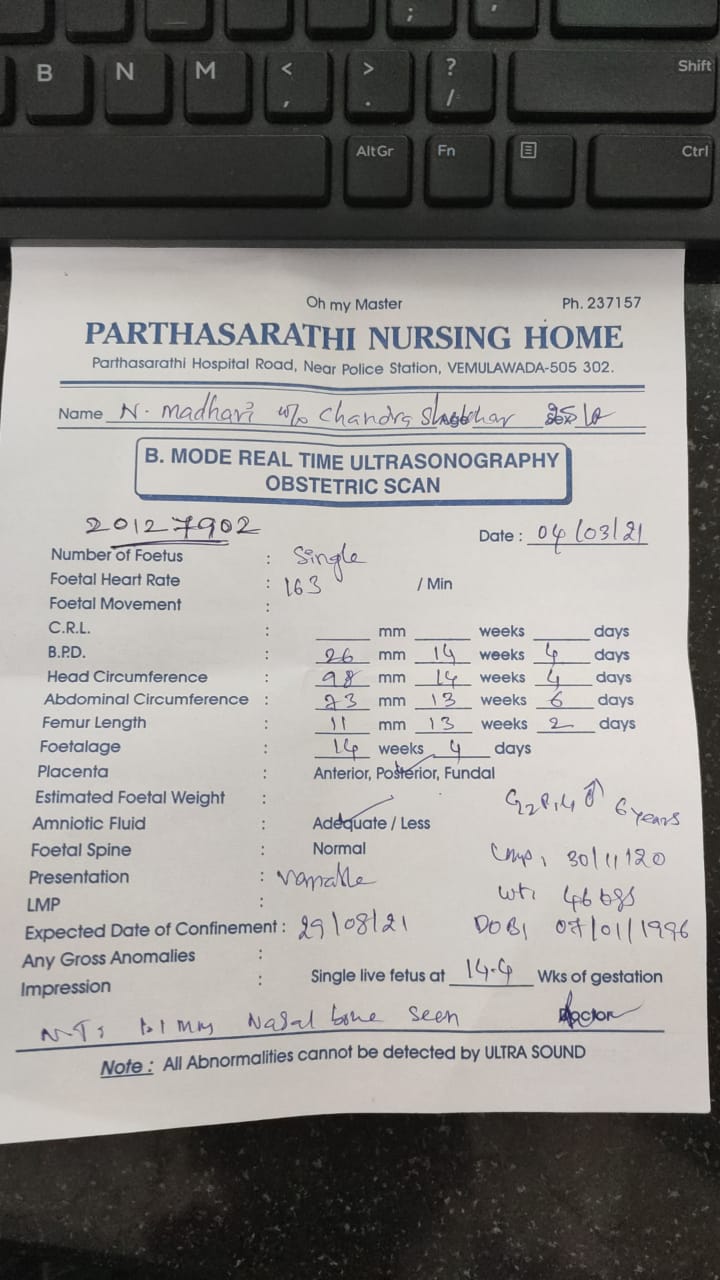 B N M < , > . ? / Shift
AltGr Fn Ctrl
Oh my Master Ph. 237157
PARTHASARATHI NURSING HOME
Parthasarathi Hospital Road, Near Police Station, VEMULAWADA-505 302.
Name N. Madhari w/o Chandra
B. MODE REAL TIME ULTRASONOGRAPHY
OBSTETRIC SCAN
20127902
Date : 04/03/21
Number of Foetus : Single
Foetal Heart Rate : 163 / Min
Foetal Movement :
C.R.L. : mm weeks days
B.P.D. : 26 mm 14 weeks 4 days
Head Circumference : 98 mm 14 weeks 4 days
Abdominal Circumference : 73 mm 13 weeks 6 days
Femur Length : 11 mm 13 weeks 2 days
Foetalage : 14 weeks 4 days
Placenta : Anterior, Posterior, Fundal
Estimated Foetal Weight :
6 years
Amniotic Fluid : Adequate / Less
Foetal Spine : Normal
30/11/20
Presentation : Variable
LMP :
wt: 46 kgs
Expected Date of Confinement : 29/08/21
DOB: 07/01/1996
Any Gross Anomalies :
Impression : Single live fetus at 14-4 Wks of gestation
N.T: mm Nasal bone seen Doctor
Note : All Abnormalities cannot be detected by ULTRA SOUND